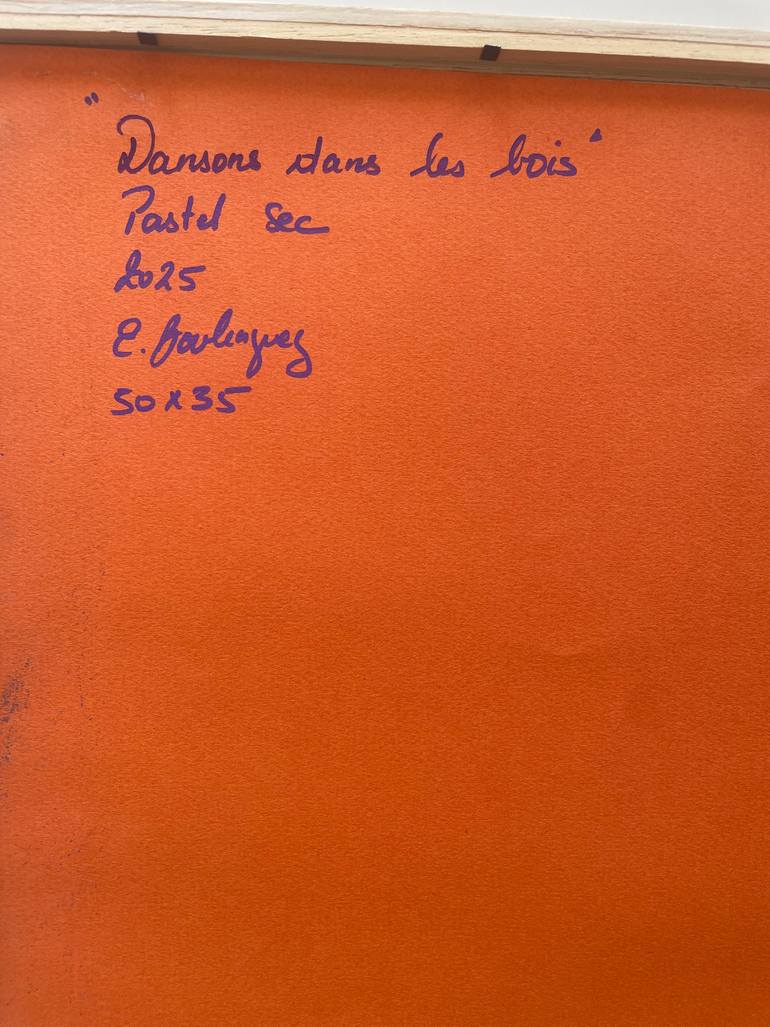 "Dansons dans les bois"
Pastel sec
2025
E. Boulenguez
50x35